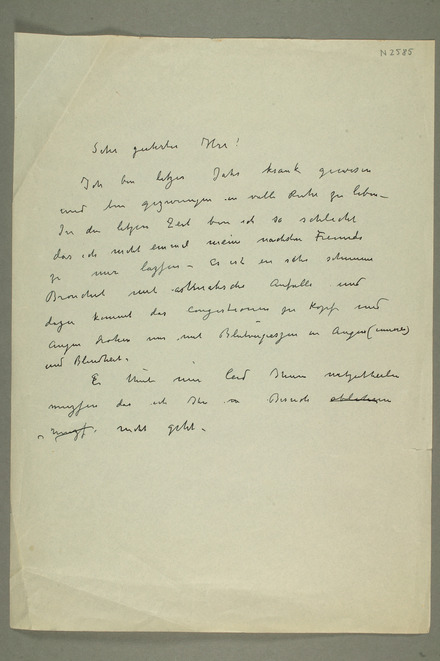 N 2585
Sehr geehrter Herr!
Ich bin letzes Jahr krank gewesen
und bin gezwungen in volle Ruhe zu leben –
In der letzen Zeit bin ich so schlecht
das ich nicht einmal meine nächsten Freunde
zu mir lassen – Es ist ein sehr schlimme
Bronchit mit asthmatische Anfälle und
dazu kommt das Congestionen zu Kopf und
Augen drohen mir mit in Augen (innere)
und Blindheit.
Es thut mir Leid Ihnen
müssen das ich Ihr Besuch
nicht geht.